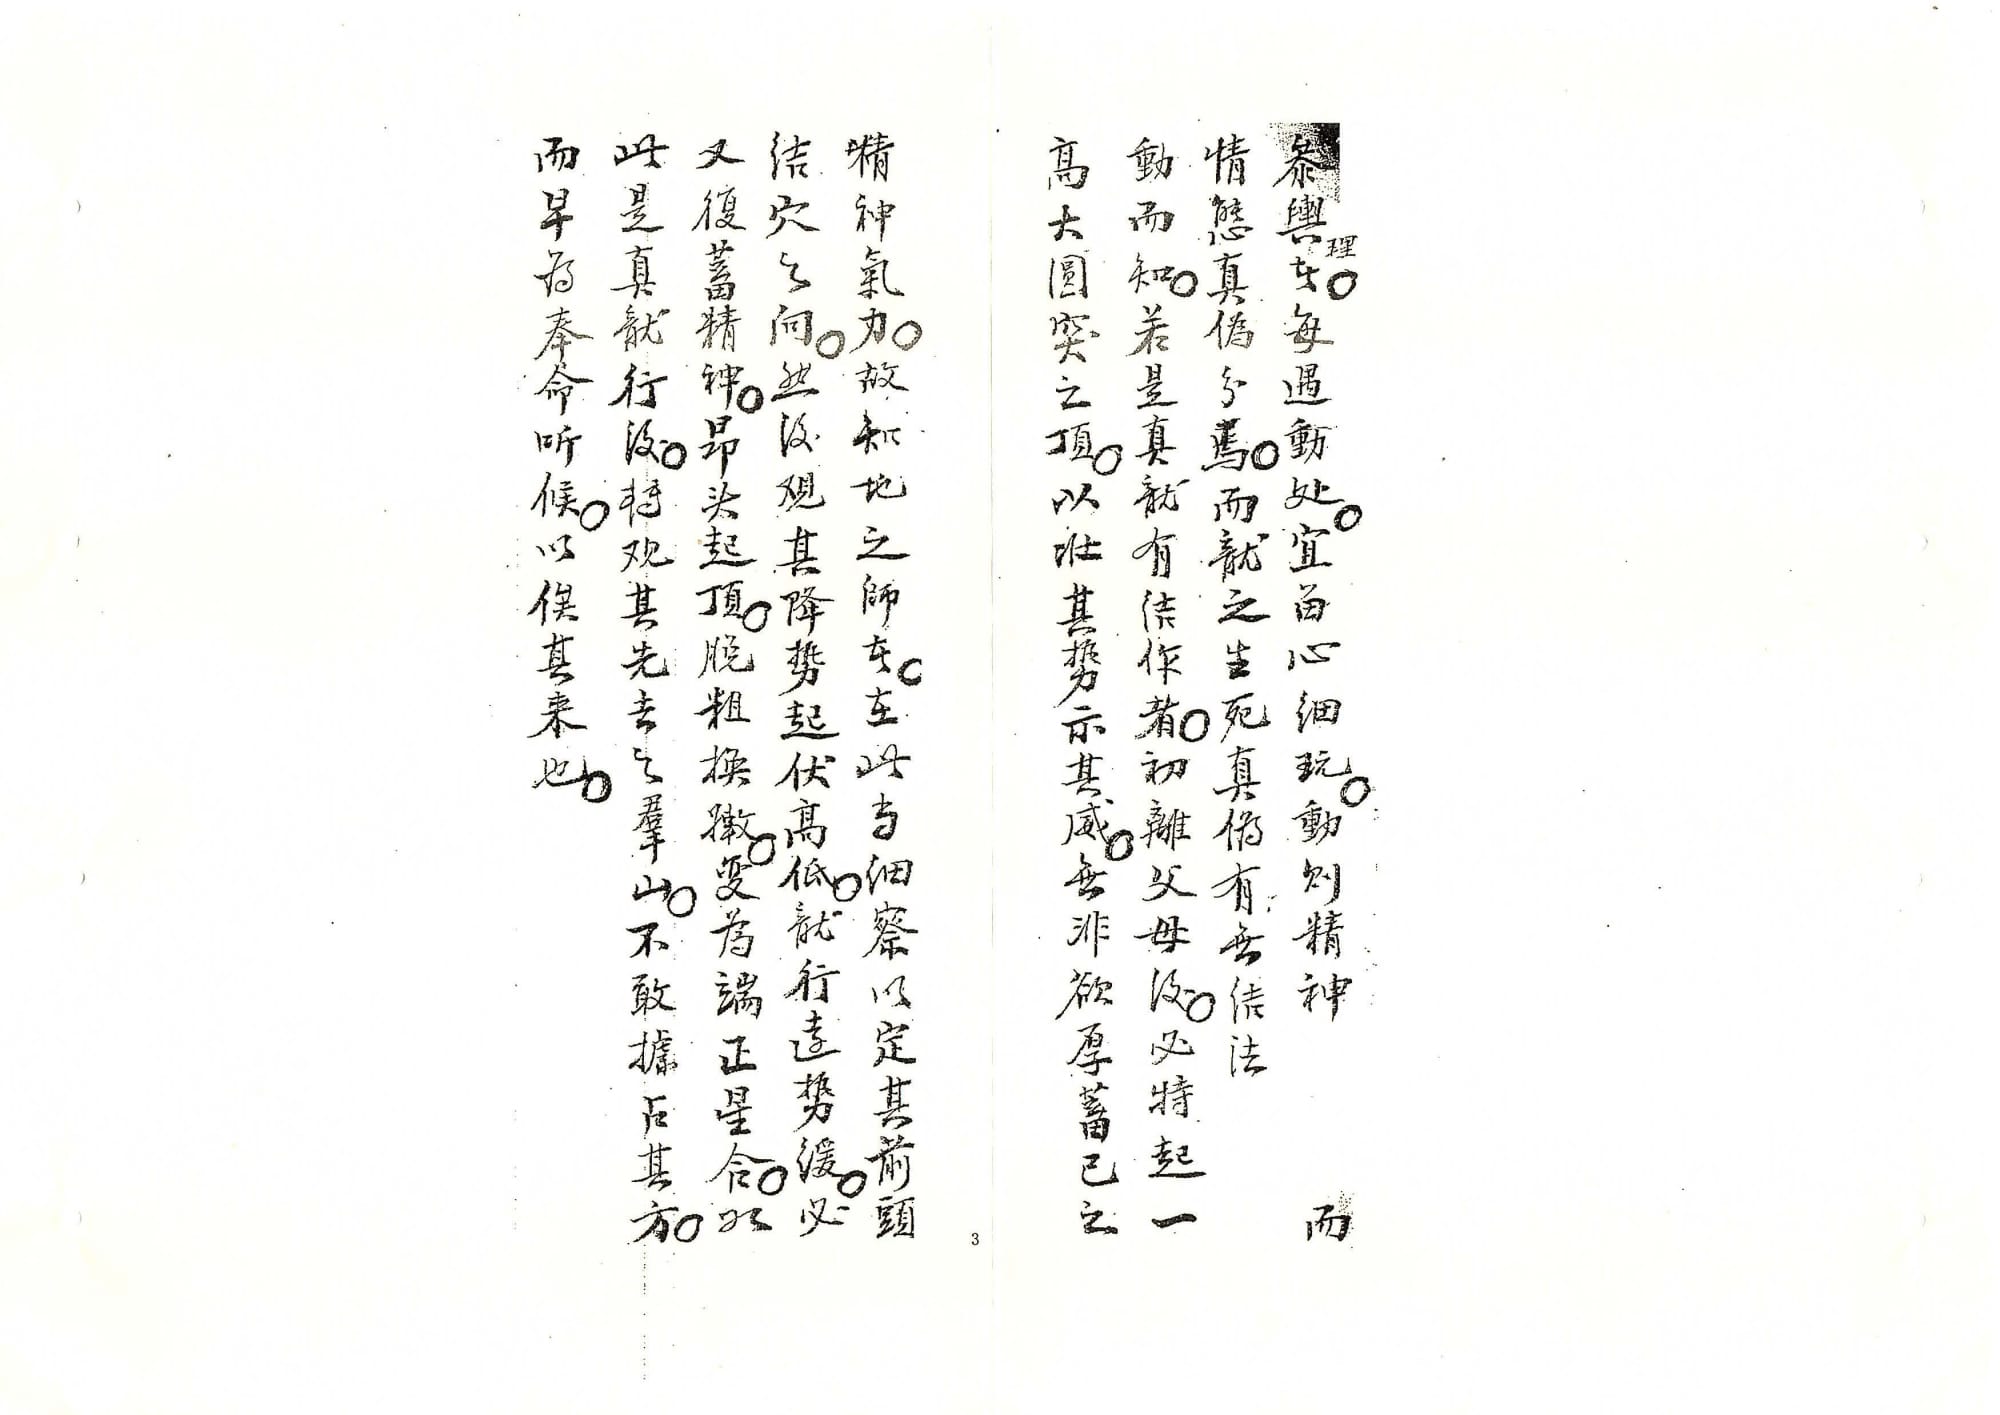 参輿理者。每遇動处。宜留心細玩。動則精神 而
情態真偽分焉。而龍之生死真偽有無结法
動而知。若是真龍有结作者。初離父母後。必特起一
高大圓突之頂。以壯其势示其威。無非欲厚蓄己之
精神氣力。故知地之師者。在此当细察以定其前頭
结穴之向。然後观其降势起伏高低。龍行遠势缓。必
又復蓄精神。昂头起頂。脱粗换嫩。变為端正星合。如
此是真龍行後。特观其先去之羣山。不敢據占其方。
而早為奉命听候。以俟其来也。
3